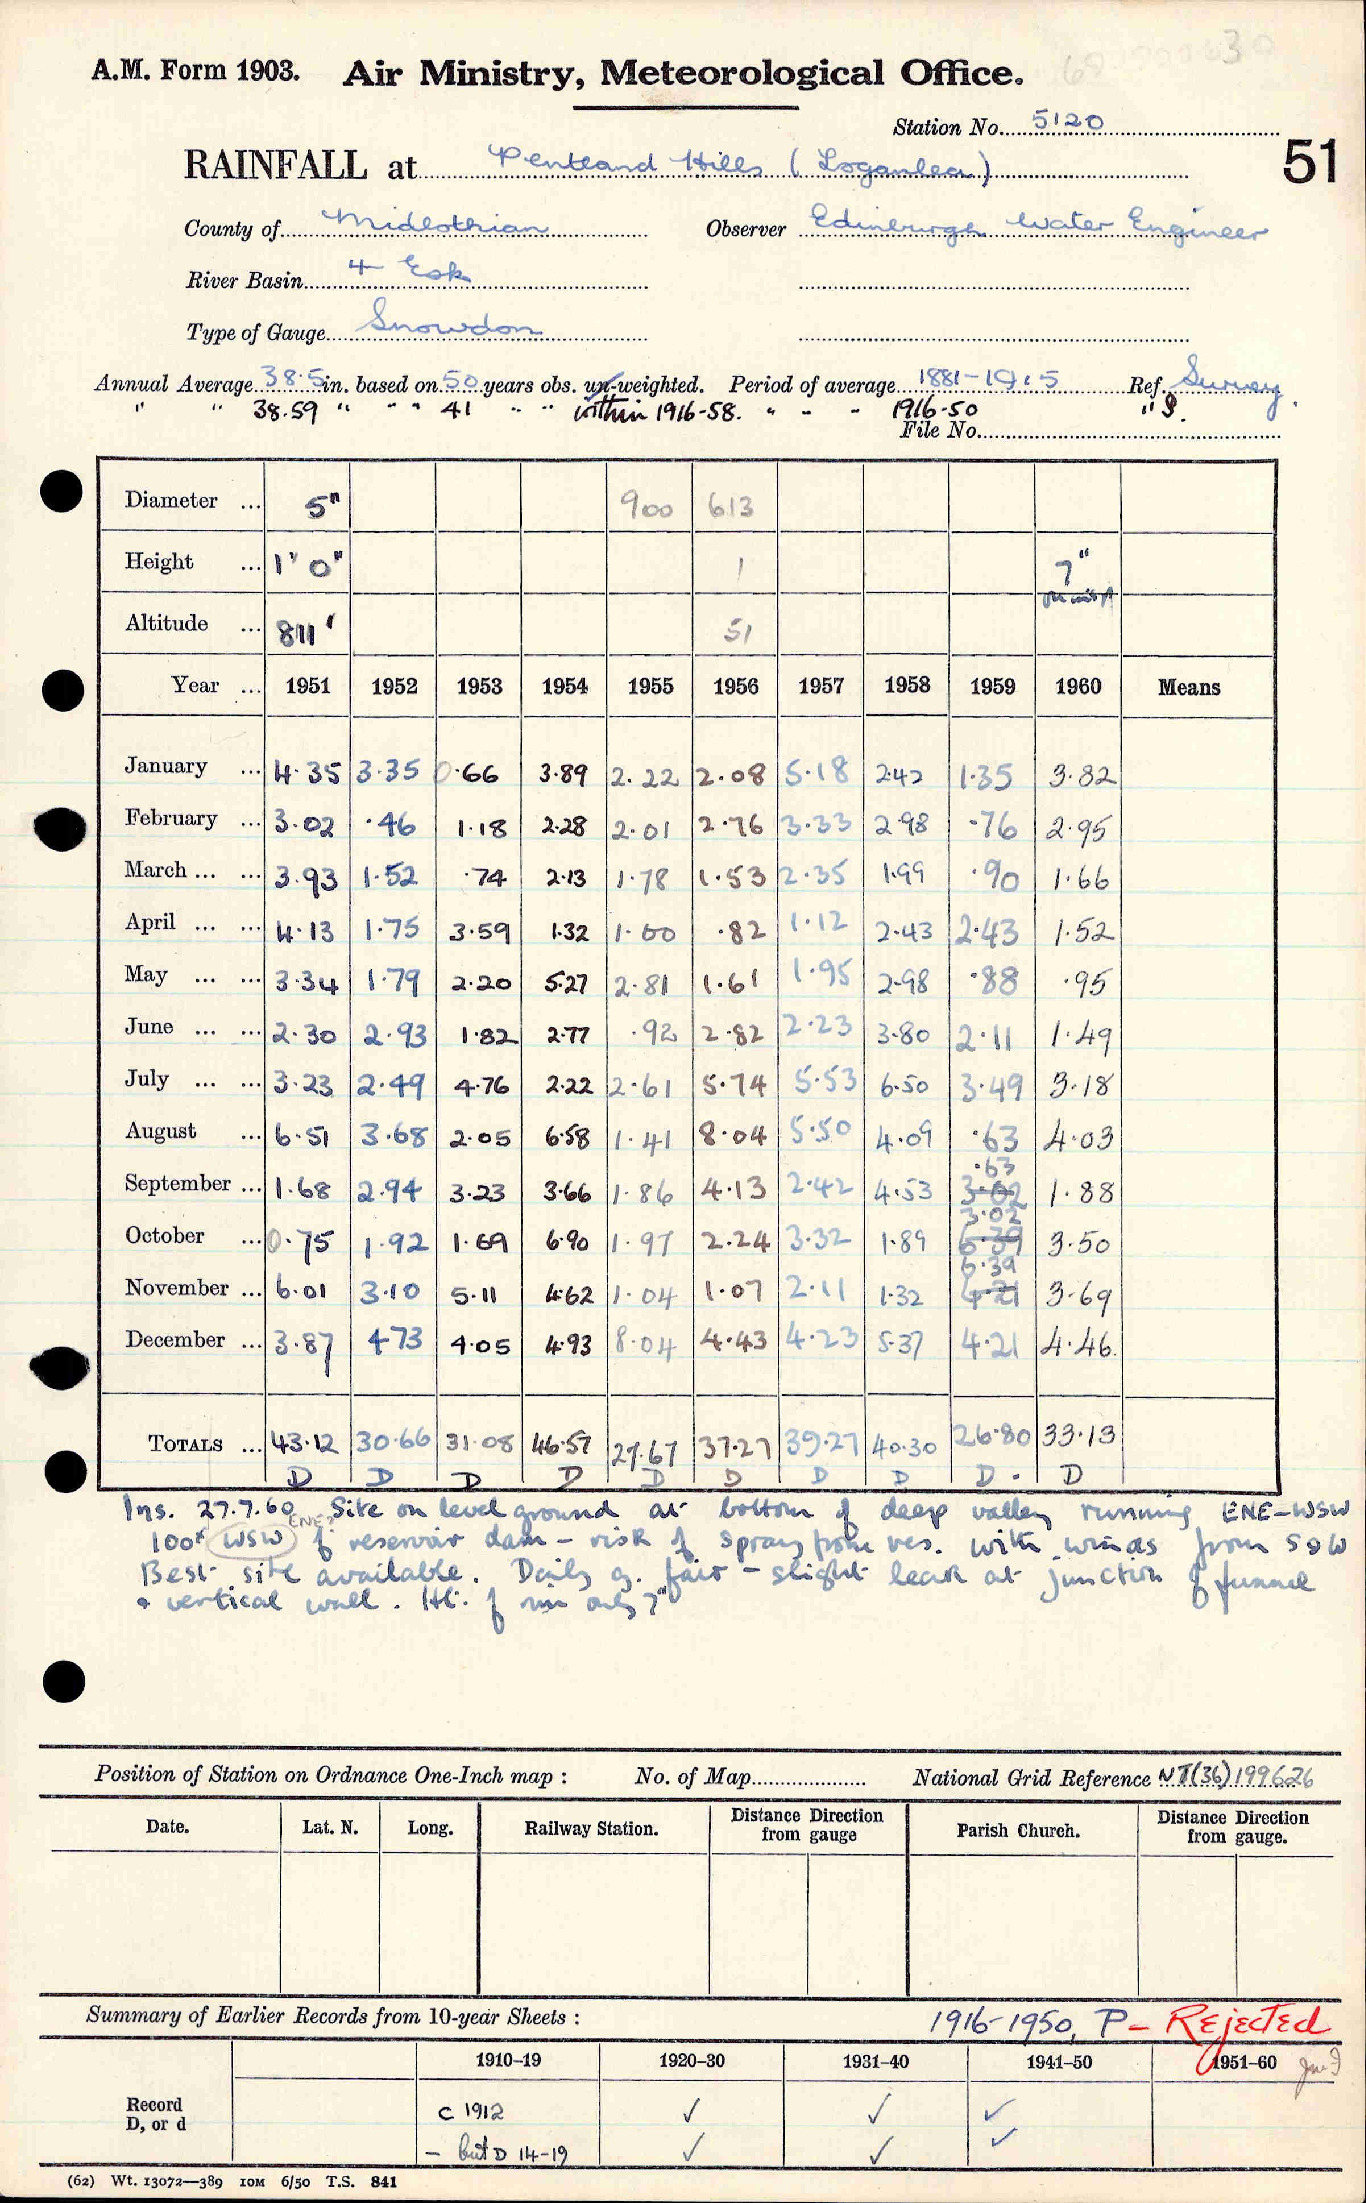 A.M. Form 1903. Air Ministry, Meteorological Office.
Station No. 5120
51
RAINFALL at Pentland Hills (Loganlea)
County of Midlothian Observer Edinburgh Water Engineer
River Basin 4 Esk
Type of Gauge Snowdon
Annual Average 38.5 in. based on 50 years obs. un-weighted. Period of average 1881-1915 Ref. Survey
" " 38.59 " " " 41 " " within 1916-58. " - - 1916-50 " 9.
File No.
Diameter ... 5" 900 613
Height ... 1' 0" 1 7"
Altitude ... 811' 51
Year ... 1951 1952 1953 1954 1955 1956 1957 1958 1959 1960 Means
January ... 4.35 3.35 0.66 3.89 2.22 2.08 5.18 2.42 1.35 3.82
February ... 3.02 .46 1.18 2.28 2.01 2.76 3.33 2.98 .76 2.95
March ... ... 3.93 1.52 .74 2.13 1.78 1.53 2.35 1.99 .90 1.66
April ... ... 4.13 1.75 3.59 1.32 1.00 .82 1.12 2.43 2.43 1.52
May ... ... 3.34 1.79 2.20 5.27 2.81 1.61 1.95 2.98 .88 .95
June ... ... 2.30 2.93 1.82 2.77 .92 2.82 2.23 3.80 2.11 1.49
July ... ... 3.23 2.49 4.76 2.22 2.61 5.74 5.53 6.50 3.49 3.18
August ... 6.51 3.68 2.05 6.58 1.41 8.04 5.50 4.09 .63 4.03
September ... 1.68 2.94 3.23 3.66 1.86 4.13 2.42 4.53 .63 3.02 1.88
October ... 0.75 1.92 1.69 6.90 1.97 2.24 3.32 1.89 3.02 6.39 3.50
November ... 6.01 3.10 5.11 4.62 1.04 1.07 2.11 1.32 6.39 4.21 3.69
December ... 3.87 4.73 4.05 4.93 8.04 4.43 4.23 5.37 4.21 4.46
TOTALS ... 43.12 30.66 31.08 46.57 27.67 37.27 39.27 40.30 26.80 33.13
D D D D D D D D D. D
Ins. 27.7.60 Site on level ground at bottom of deep valley running ENE-WSW
100x WSW ENE? of reservoir dam - risk of spray from res. with winds from S & W
Best site available. Daily g. fair - slight leak at junction of funnel
& vertical wall. Ht. of rim only 7"
Position of Station on Ordnance One-Inch map : No. of Map National Grid Reference NT(36)199626
Date. Lat. N. Long. Railway Station. Distance Direction from gauge Parish Church. Distance Direction from gauge.
Summary of Earlier Records from 10-year Sheets : 1916-1950, P - Rejected
1910-19 1920-30 1931-40 1941-50 1951-60
Record D, or d c 1912 ✓ ✓ ✓
- but D 14-19 ✓ ✓ ✓
(62) Wt. 13072—389 10M 6/50 T.S. 841